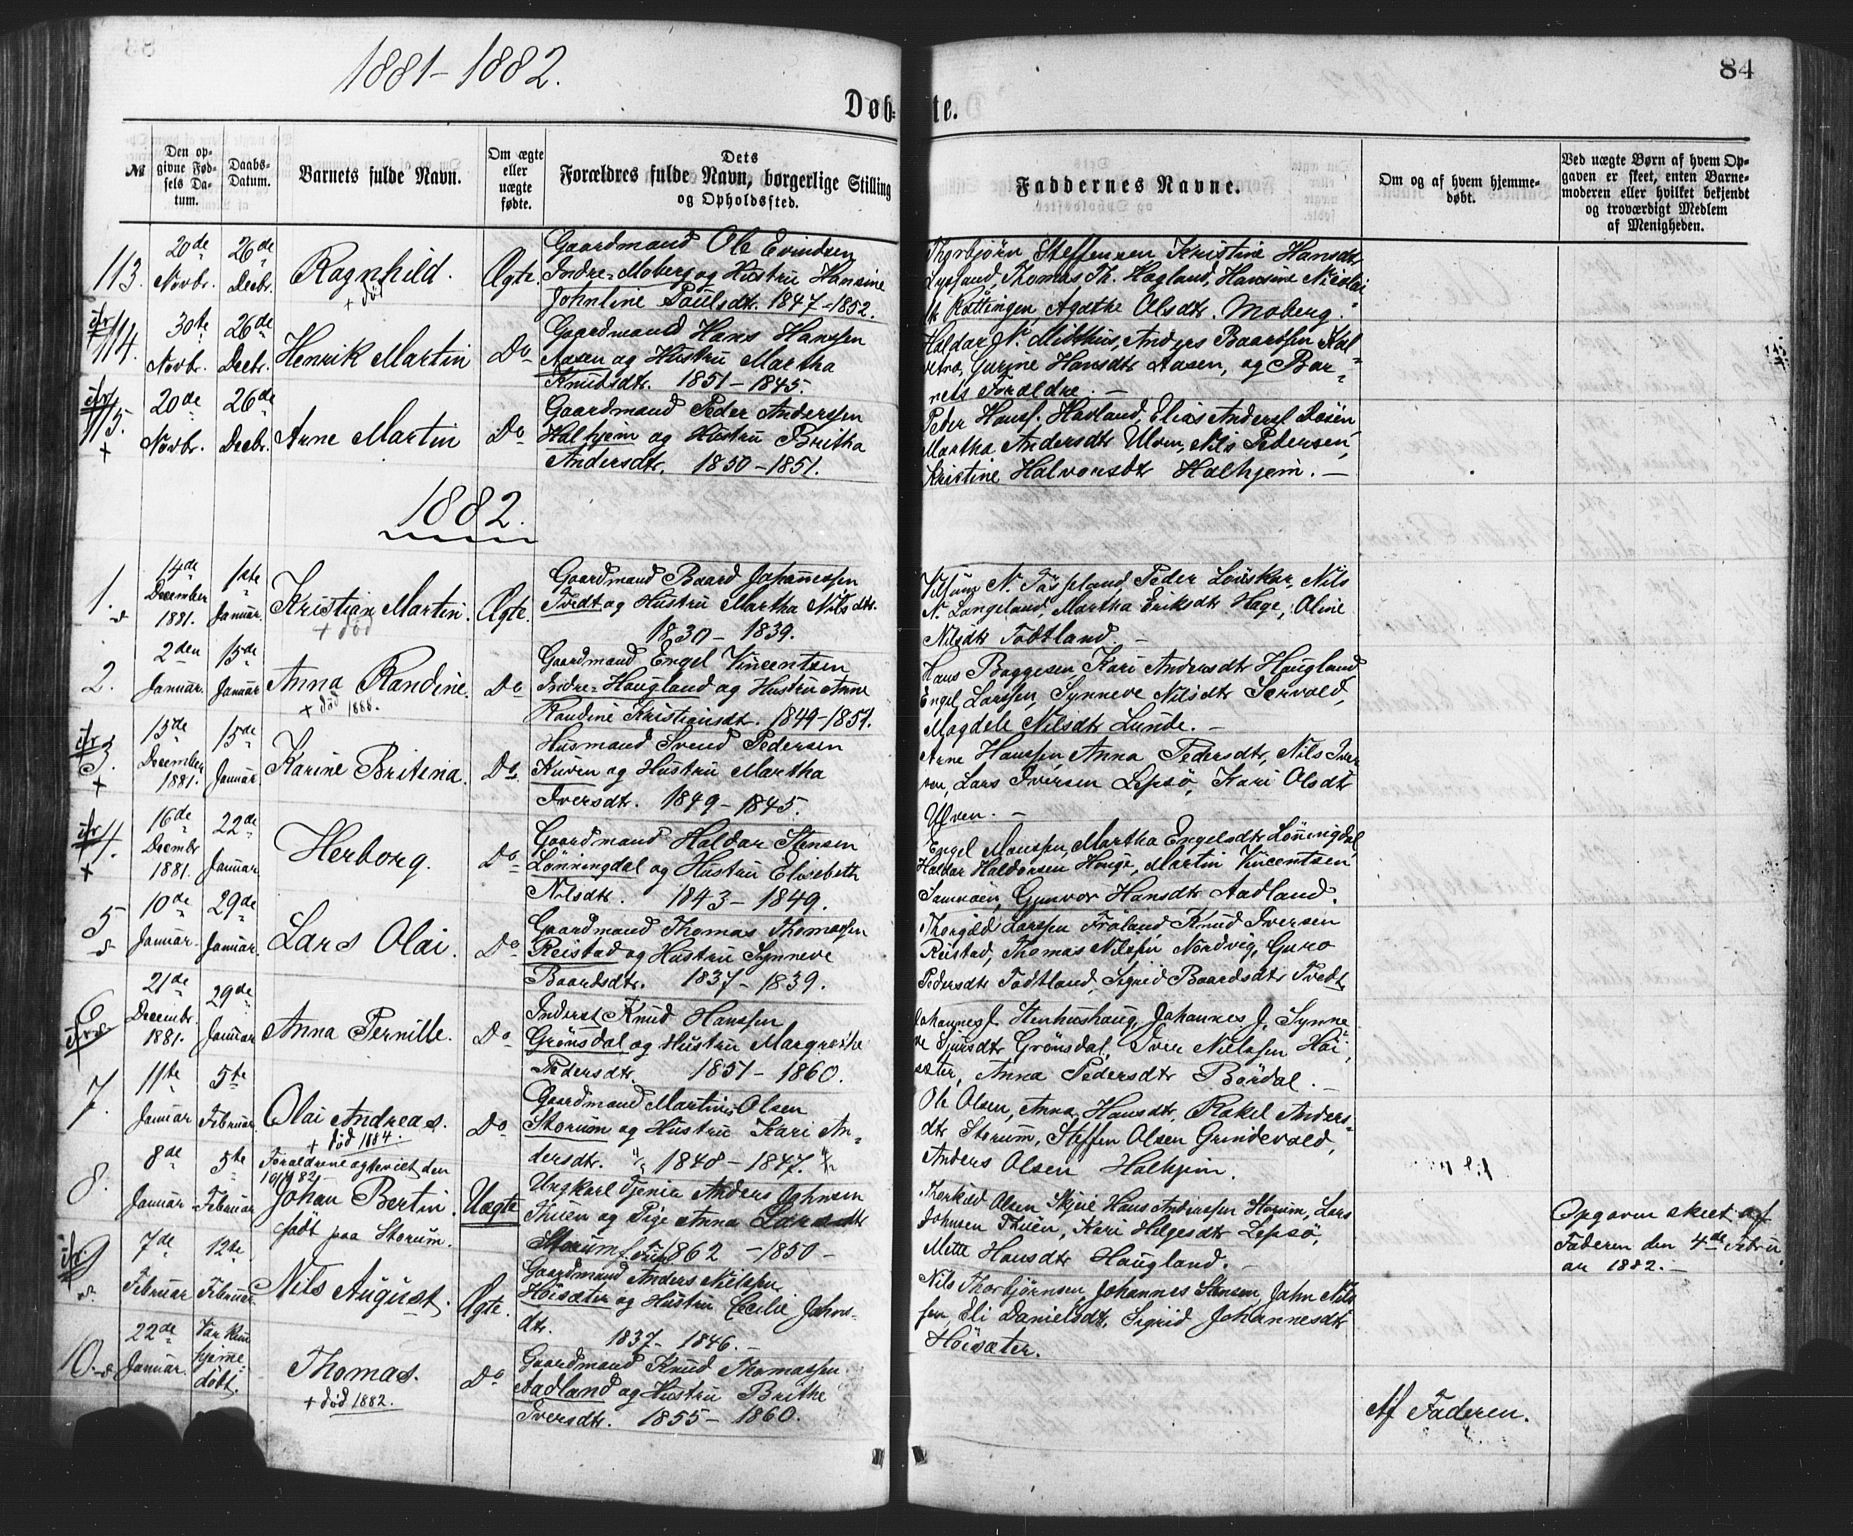 1881-1882.
84
Døb-
te.
№
Den opgivne Fødsels Datum.
Daabs-Datum.
Barnets fulde Navn.
Om ægte eller uægte fødte.
Dets Forældres fulde Navn, borgerlige Stilling og Opholdssted.
Faddernes Navne.
Om og af hvem hjemmedøbt.
Ved uægte Børn af hvem Opgaven er skeet, enten Barnemoderen eller hvilket bekjendt og troværdigt Medlem af Menigheden.
113. 20de Novbr. 26de Decbr. Ragnhild. + død Ægte.
Gaardmand Ole Evindsen
Indre-Moberg og Hustru Hansine
Johnline Paulsdt. 1847-1852.
Thorbjørn Steffensen Kristine Hansdt
Lysand, Thomas Th. Hagland, Hansine Nicolai
Røttingen, Agathe Olsdt. Moberg.
114. 30te Novbr. 26de Decbr. Henrik Martin Do
Gaardmand Hans Hansen
Aasen og Hustru Martha
Knudsdtr. 1851-1845
Haldor N. Midthus, Anders Baardsen Kal-
vetræ, Gurine Hansdt Aasen, og Bar-
nets Forældre. -
115. + 20de Novbr. 26de Decbr. Arne Martin Do
Gaardmand Peder Andersen
Halhjem og Hustru Britha
Andersdtr. 1850-1851.
Peder Hans. Havland, Elias Anders. Døsen
Martha Andersdtr Ulven, Nils Pedersen,
Kristine Halvorsdt Halhjem. -
1882.
1. d 14de December 1881. 1ste Januar. Kristian Martin. + død Ægte.
Gaardmand Baard Johannessen
Tvedt og Hustru Martha Nilsdtr.
1830-1839.
N. Tøsseland, Peder Løvskar, Nils
N. Langeland, Martha Eriksdt Hage, Oline
Nilsdtr Todtland. -
2. 2den Januar. 15de Januar. Anna Randine. + død 1888. Do
Gaardmand Engel Vincentsen
Indre-Haugland og Hustru Anne
Randine Kristiansdt. 1849-1851.
Hans Baggesen, Kari Andersdtr Haugland
Engel Larssen, Synneve Nilsdt Sørvold,
Magdele Nilsdt Lunde. -
3. + 13de December 1881. 15de Januar. Karine Britena. Do
Husmand Svend Pedersen
Kuven og Hustru Martha
Iversdtr. 1849-1845.
Arne Hanssen Anna Pedersdt, Nils Iver
sen, Lars Iversen Lepsø, Kari Olsdt
Ulven. -
4. + 16de Decembr 1881. 22de Januar. Herborg. Do
Gaardmand Haldor Stensen
Lønningdal og Hustru Elisebeth
Nilsdt. 1843-1849.
Engel Monssen, Martha Engelsdt Lønningdal
Haldor Haldorsen Hauge, Martin Vincentsen
Samnøen, Gunvor Hansdt Aadland.
5 d 10de Januar. 29de Januar. Lars Olai. Do
Gaardmand Thomas Thomassen
Reistad og Hustru Synneve
Baardsdt. 1837-1839.
Thorgild Larssen Frøland Knud Iversen
Reistad, Thomas Nilssen Nordvig, Guro
Pedersdt Todtland, Sigrid Baardsdt Tvedt
6 21de Decembr. 1881. 29de Januar. Anna Pernille. Do
Inderst Knud Hanssen
Grønsdal og Hustru Margrethe
Pedersdtr. 1851-1860.
Johannes J. Stenhushaug, Johannes J. Synne
ve Sjursdt Grønsdal, Iver Nielssen Høi
sæter, Anna Pedersdt Børdal. -
7. 11te Januar 5te Februar Olai Andreas. + død 1884. Do
Gaardmand Martin Olsen
Storum og Hustru Kari An-
dersdt. 1848-1847.
Ole Olsen, Anna Hansdt, Rakel Anders-
dt Storum, Steffen Olsen Grindevold,
Anders Olsen Halhjem.
8. 8de Januar 5te Februar Forældrene ægteviet den 10/9 82 Johan Bertin. født paa Storum. Uægte
Ungkarl Tjener Anders Johnsen
Thuen og Pige Anna Larsdt
Storum f. Tuen 1862-1850-
Thorkild Olsen Skjeie Hans Andreassen Storum, Lars
Johnsen Thuen, Kari Helgesdt Lepsø,
Mitte Hansdt Haugland. -
Opgaven skeet af
Faderen den 4de Febru
ar 1882. -
9 7de Februar 12te Februar Nils August. Ægte.
Gaardmand Anders Nilssen
Høisæter og Hustru Cecilie Johns-
dt. 1837-1846.-
Nils Thorbjørnsen, Johannes Stensen, John Nils
sen, Eli Danielsdt, Sigrid Johannesdt
Høisæter.
10. d 22de Januar. Var kun hjemme døbt. Thomas. + død 1882. Do
Gaardmand Knud Thomassen
Aadland og Hustru Brithe
Iversdt. 1855-1860.
Af Faderen.